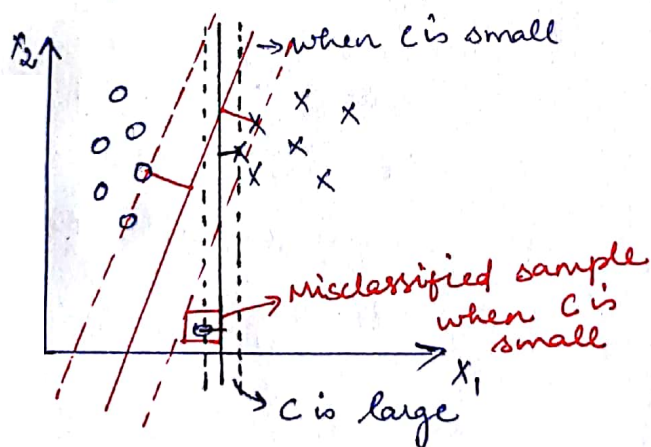 x₂
when C is small
Misclassified sample
when C is
small
X₁
C is large